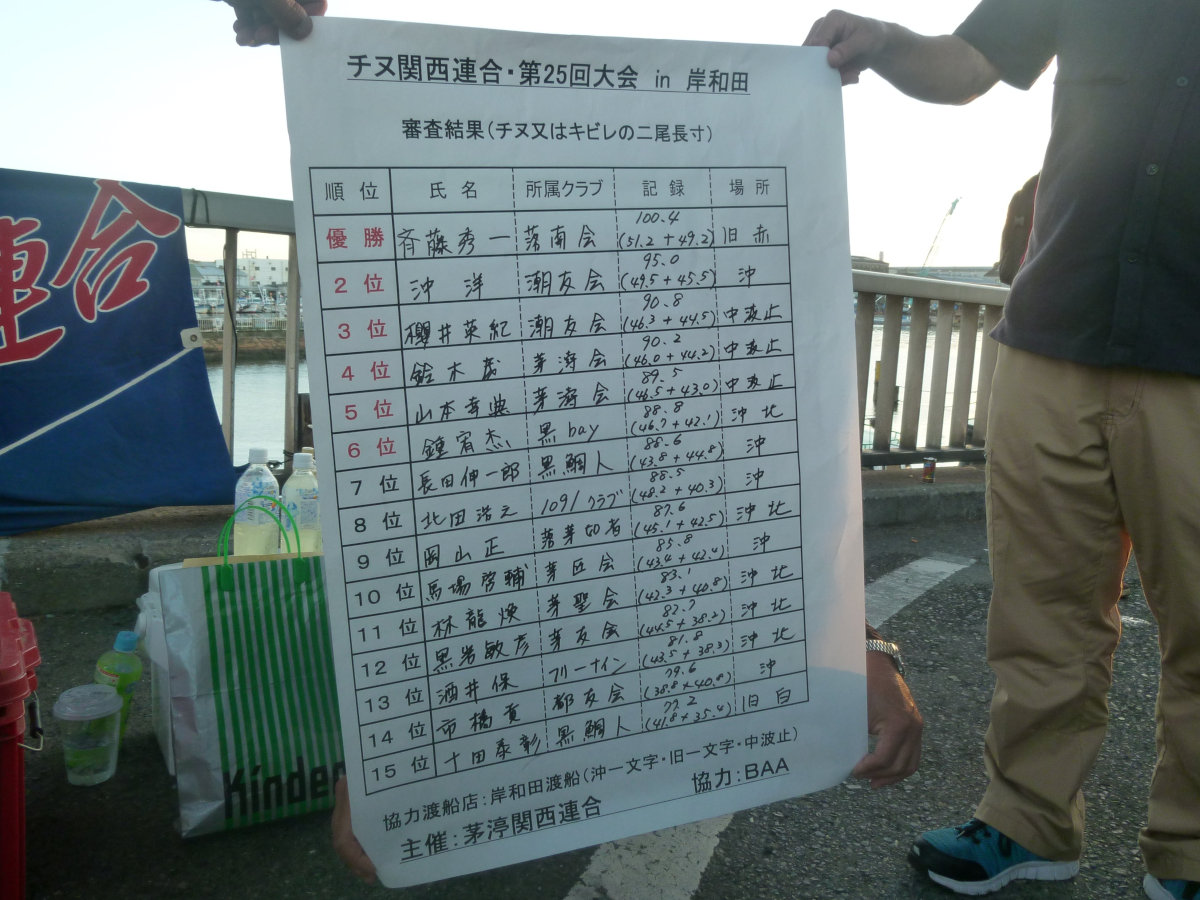 チヌ関西連合・第25回大会 in 岸和田
審査結果(チヌ又はキビレの二尾長寸)
順位 氏名 所属クラブ 記録 場所
優勝 斉藤秀一 落南会 100.4 (51.2+49.2) 旧赤
2位 沖洋 潮友会 95.0 (49.5+45.5) 沖
3位 櫻井英紀 潮友会 90.8 (46.3+44.5) 中波止
4位 鈴木茂 茅渟会 90.2 (46.0+44.2) 中波止
5位 山本幸典 茅渟会 89.5 (46.5+43.0) 中波止
6位 鍾宥杰 黒bay 88.8 (46.7+42.1) 沖北
7位 長田伸一郎 黒鯛人 88.6 (43.8+44.8) 沖
8位 北田浩之 1091クラブ 88.5 (48.2+40.3) 沖
9位 岡山正 落茅切者 87.6 (45.1+42.5) 沖北
10位 馬場啓輔 茅匠会 85.8 (43.4+42.4) 沖
11位 林龍煥 茅聖会 83.1 (42.3+40.8) 沖北
12位 黒岩敏彦 茅友会 82.7 (44.5+38.2) 沖北
13位 酒井保 フリーナイン 81.8 (43.5+38.3) 沖北
14位 市橋貢 都友会 79.6 (38.8+40.8) 沖
15位 十田泰彰 黒鯛人 77.2 (41.8+35.4) 旧白
協力渡船店:岸和田渡船(沖一文字・旧一文字・中波止)
主催:茅渟関西連合 協力:BAA
連合
Kinder